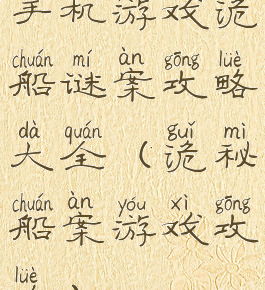 手机游戏诡
chuán mí àn gōng lüè
船谜案攻略
dà quán guǐ mì
大全（诡秘
chuán àn yóu xì gōng
船案游戏攻
lüè